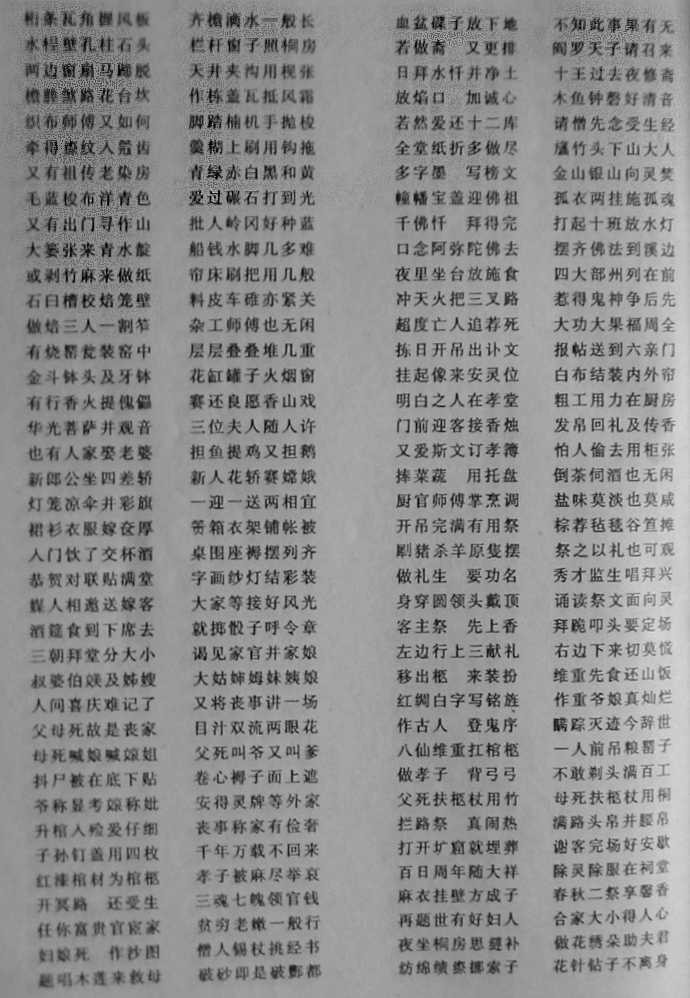 桁条瓦角握风板 齐檐滴水一般长
水桯壁孔柱石头 栏杆窗子照桐房
两边窗扇马蹄脱 天井夹沟用枧张
路花台坎 作栋盖瓦抵风霜
织布师傅又如何 脚踏楠机手抛梭
牵得 纹入 齿 羹糊上刷用钩拖
又有祖传老染房 青绿赤白黑和黄
毛蓝梭布洋青色 爱过碾石打到光
又有出门寻作山 批人岭冈好种蓝
大篓张来青水靛 船钱水脚几多难
或剥竹麻来做纸 帘床刷把用几般
石臼槽校焙笼壁 料皮车碓亦紧关
做焙三人一割笮 杂工师傅也无闲
有烧罂瓮装窑中 层层叠叠堆几重
金斗钵头及牙钵 花缸罐子火烟窗
有行香火提傀儡 赛还良愿香山戏
华光菩萨并观音 三位夫人随人许
也有人家娶老婆 担鱼提鸡又担鹅
新郎公坐四差轿 新人花轿赛嫦娥
灯笼凉伞并彩旗 一迎一送两相宜
裙衫衣服嫁奁厚 箱衣架铺帐被
人门饮了交杯酒 桌围座褥摆列齐
恭贺对联贴满堂 字画纱灯结彩装
媒人相邀送嫁客 大家等接好风光
酒筵食到下席去 就掷骰子呼令章
三朝拜堂分大小 谒见家官并家娘
叔婆伯 及姊嫂 大姑婶姆妹姨娘
人间喜庆难记了 又将丧事讲一场
父母死故是丧家 目汁双流两眼花
母死喊娘喊 姐 父死叫爷又叫爹
抖尸被在底下贴 卷心褥子面上遮
爷称显考 称妣 安得灵牌等外家
升棺入殓爱仔细 丧事称家有俭奢
子孙钉盖用四枚 千年万载不回来
红漆棺材为棺柩 孝子被麻尽举哀
开冥路 还受生 三魂七魄领官钱
任你富贵官宦家 贫穷老嫩一般行
妇娘死 作沙图 僧人锡杖挑经书
题唱木莲来救母 破砂即是破酆都
血盆碟子放下地 不知此事果有无
若做斋 又更排 阎罗天子请召来
日拜水忏并净土 十王过去夜修斋
放焰口 加诚心 木鱼钟磬好清音
若然爱还十二库 请僧先念受生经
全堂纸折多做尽 竹头下山大人
多字墨 写榜文 金山银山向灵焚
幢幡宝盖迎佛祖 孤衣两挂施孤魂
千佛忏 拜得完 打起十班放水灯
口念阿弥陀佛去 摆齐佛法到溪边
夜里坐台放施食 四大部州列在前
冲天火把三叉路 惹得鬼神争后先
超度亡人追荐死 大功大果福周全
拣日开吊出讣文 报帖送到六亲门
挂起像来安灵位 白布结装内外帘
明白之人在孝堂 粗工用力在厨房
门前迎客接香烛 发帛回礼及传香
又爱斯文订孝簿 怕人偷去用柜张
捧菜蔬 用托盘 倒茶伺酒也无闲
厨官师傅掌烹调 盐味莫淡也莫咸
开吊完满有用祭 棕荐毡毯谷笪摊
刷猪杀羊原隻摆 祭之以礼也可观
做礼生 要功名 秀才监生唱拜兴
身穿圆领头戴顶 诵读祭文面向灵
客主祭 先上香 拜跪叩头要定场
左边行上三献礼 右边下来切莫慌
移出柩 来装扮 维重先食还山饭
红绸白字写铭旌 作重爷娘真灿烂
作古人 登鬼序 瞒踪灭迹今辞世
八仙维重扛棺柩 一人前吊粮罂子
做孝子 背弓弓 不敢剃头满百工
父死扶柩杖用竹 母死扶柩杖用桐
拦路祭 真闹热 满路头帛并腰帛
打开圹窟就埋葬 谢客完场好安歇
百日周年随大祥 除灵除服在祠堂
麻衣挂壁方成子 春秋二祭享馨香
再题世有好妇人 合家大小得人心
夜坐桐房思缝补 做花绣朵助夫君
纺绵绩 挪索子 花针钻子不离身